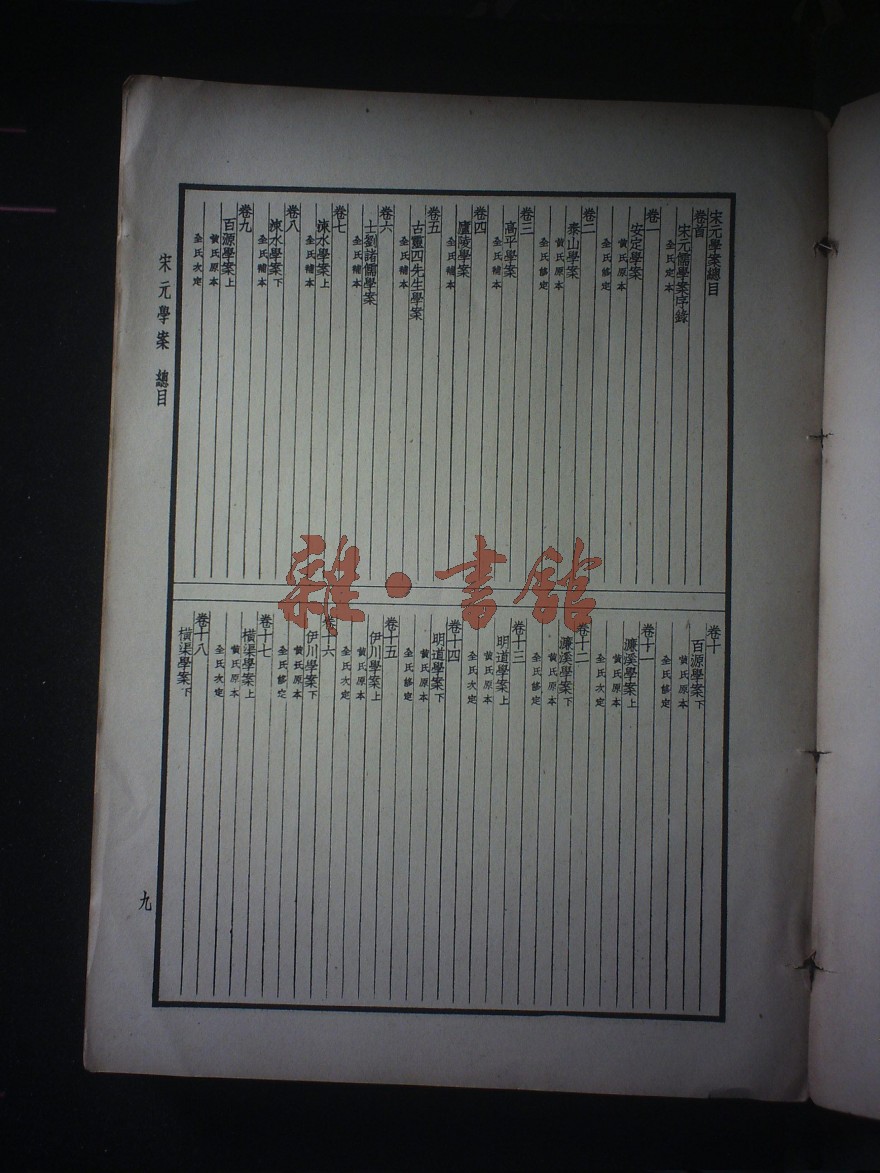 宋元學案總目
卷首
宋元儒學案序錄
全氏定本
卷一
安定學案
黃氏原本
全氏修定
卷二
泰山學案
黃氏原本
全氏修定
卷三
高平學案
全氏補本
卷四
廬陵學案
全氏補本
卷五
古靈四先生學案
全氏補本
卷六
士劉諸儒學案
全氏補本
卷七
涑水學案上
全氏補本
卷八
涑水學案下
全氏補本
卷九
百源學案上
黃氏原本
全氏次定
卷十
百源學案下
黃氏原本
全氏修定
卷十一
濂溪學案上
黃氏原本
全氏次定
卷十二
濂溪學案下
黃氏原本
全氏修定
卷十三
明道學案上
黃氏原本
全氏次定
卷十四
明道學案下
黃氏原本
全氏修定
卷十五
伊川學案上
黃氏原本
全氏次定
卷十六
伊川學案下
黃氏原本
全氏修定
卷十七
橫渠學案上
黃氏原本
全氏次定
卷十八
橫渠學案下
宋元學案 總目
九
雜·書館